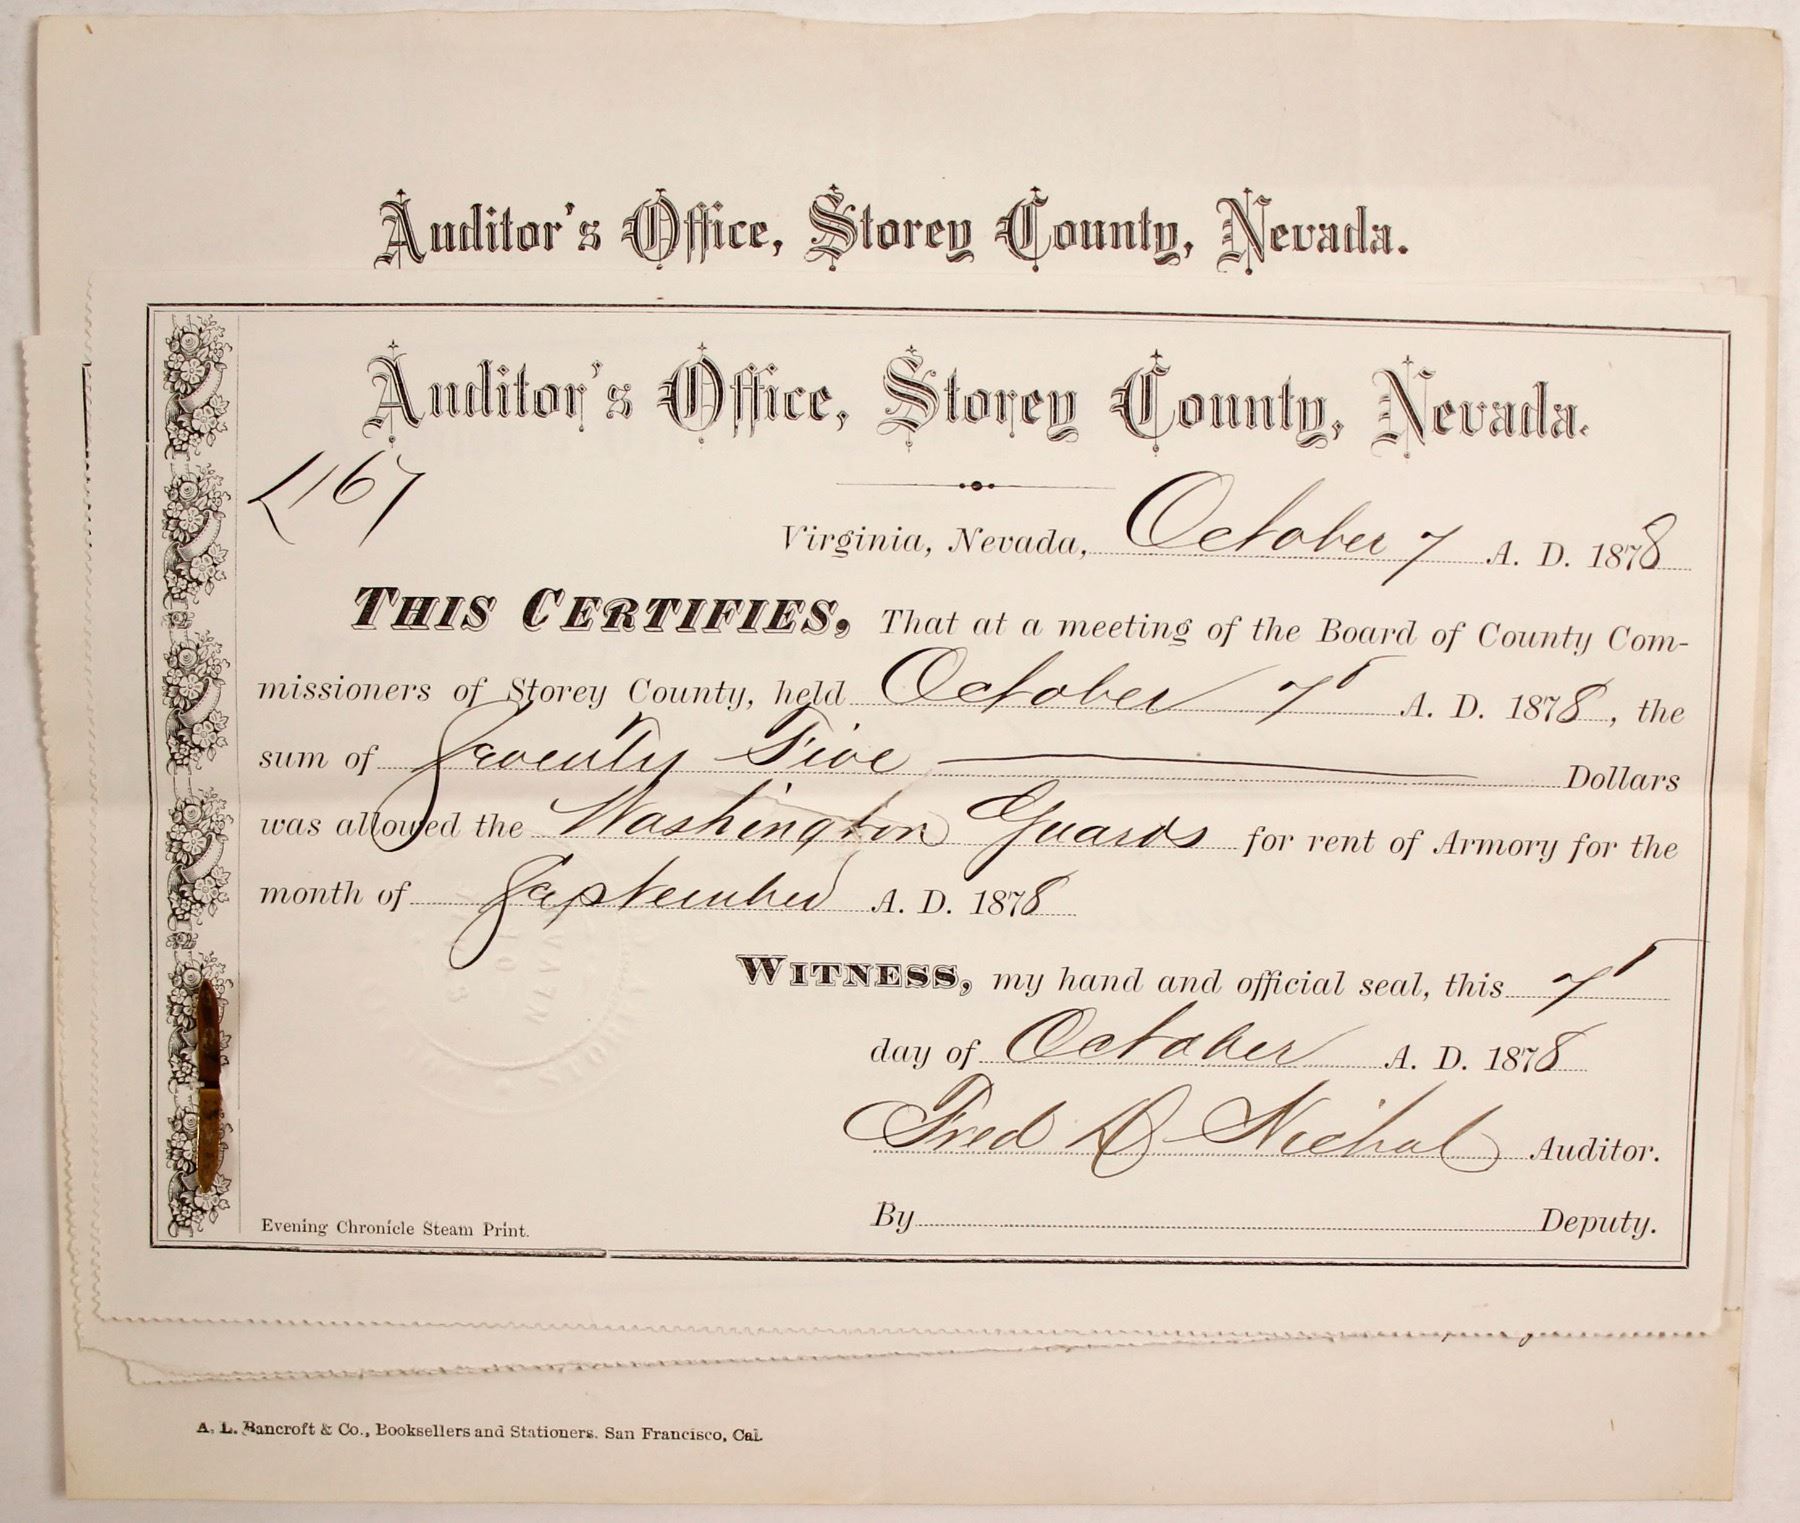 Auditor's Office, Storey County, Nevada.
Auditor's Office, Storey County, Nevada.
167
Virginia, Nevada, October 7 A. D. 1878
THIS CERTIFIES, That at a meeting of the Board of County Com-
missioners of Storey County, held October 7" A. D. 1878, the
sum of Seventy Five Dollars
was allowed the Washington Guards for rent of Armory for the
month of September A. D. 1878
WITNESS, my hand and official seal, this 7"
day of October A. D. 1878
Fred D Nichol Auditor.
By Deputy.
Evening Chronicle Steam Print.
A. L. Bancroft & Co., Booksellers and Stationers. San Francisco, Cal.